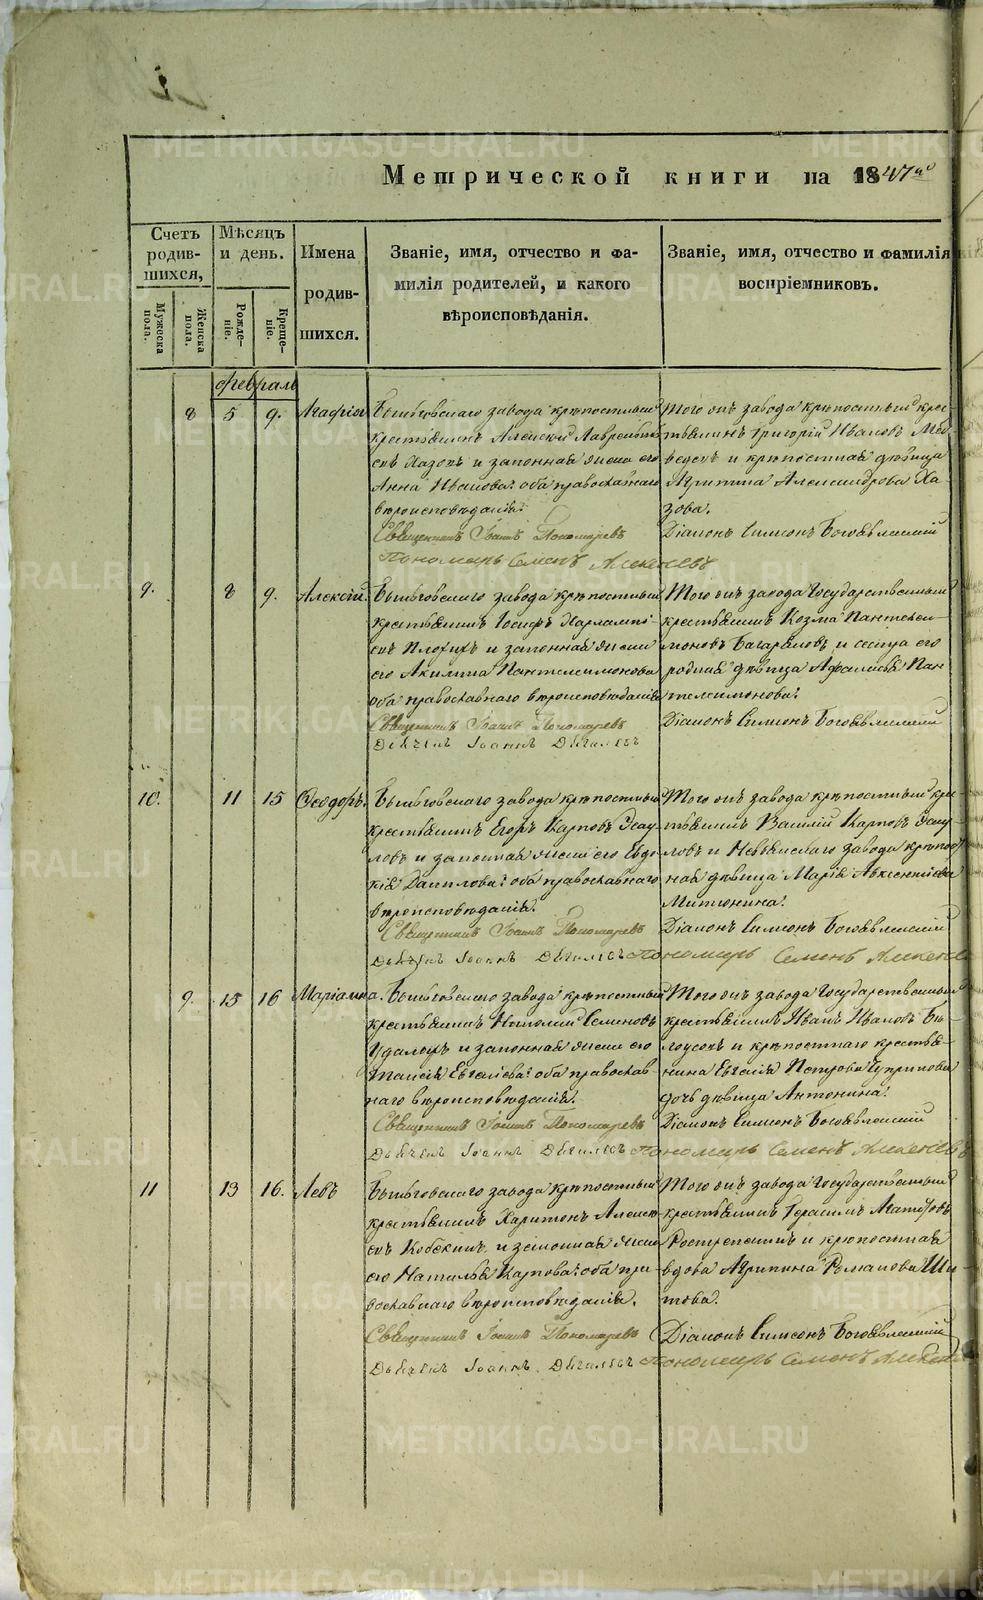 Метрической книги на 1847й
Счетъ родив-шихся,
Мѣсяцъ и день.
Имена родив-шихся.
Званіе, имя, отчество и фа-
милія родителей, и какого
вѣроисповѣданія.
Званіе, имя, отчество и фамилія
воспріемниковъ.
Мужеска пола.
Женска пола.
Рожде-ніе.
Креще-ніе.
Февраль
8 5 9. Агафія
Быньговскаго завода крѣпостный
крестьянинъ Алексѣй Лаврентьевъ
Хазовъ и законная жена его
Анна Иванова: оба православнаго
вѣроисповѣданія.
Священникъ Іоаннъ Пономаревъ
Пономарь Семенъ Алексѣевъ
Того жъ завода крѣпостный крес-
тьянинъ Григорій Ивановъ
и крѣпостная дѣвица
Агрипина Александрова Ха
зова.
Діаконъ Симеонъ Богоявленскій
9. 8 9. Алексій.
Быньговскаго завода крѣпостный
крестьянинъ Іосифъ Харлампі-
евъ Плохихъ и законная жена
его Акилина Пантелеимонова
оба православнаго вѣроисповѣданія
Священникъ Іоаннъ Пономаревъ
Дьячекъ Іоаннъ Дягилевъ
Того жъ завода Государственный
крестьянинъ Козма Пантелеи-
моновъ и сестра его
родная дѣвица Афанасія Пан
телеимонова.
Діаконъ Симеонъ Богоявленскій
10. 11 15 Ѳеодоръ.
Быньговскаго завода крѣпостный
крестьянинъ Егоръ Карповъ Эсау-
ловъ и законная жена его Евдо
кія Данилова: оба православнаго
вѣроисповѣданія.
Священникъ Іоаннъ Пономаревъ
Дьячекъ Іоаннъ Дягилевъ
Того жъ завода крѣпостный кре-
стьянинъ Василій Карповъ Эсау-
ловъ и Невьянскаго завода крѣпост
ная дѣвица Марія Авксентіева
Митюнина.
Діаконъ Симеонъ Богоявленскій
Пономарь Семенъ Алексѣев
9. 15 16 Маріамна.
Быньговскаго завода крѣпостный
крестьянинъ Николай Семеновъ
Удалой и законная жена его
Таисія Евгеніева: оба православ
наго вѣроисповѣданія.
Священникъ Іоаннъ Пономаревъ
Дьячекъ Іоаннъ Дягилевъ
Того жъ завода Государственный
крестьянинъ Иванъ Ивановъ Бѣ
лоусовъ и крѣпостнаго крестья-
нина Евгенія Петрова Чуприкова
дочь дѣвица Антонина.
Діаконъ Симеонъ Богоявленскій
Пономарь Семенъ Алексѣевъ
11 13 16. Левъ
Быньговскаго завода крѣпостный
крестьянинъ Харитонъ Алексѣ
евъ Кобелкинъ и законная жена
его Наталья Карпова: оба пра-
вославнаго вѣроисповѣданія.
Священникъ Іоаннъ Пономаревъ
Дьячекъ Іоаннъ Дягилевъ
Того жъ завода Государственный
крестьянинъ Герасимъ Агаповъ
и крѣпостная
вдова Агрипина Романова Ши
това.
Діаконъ Симеонъ Богоявленскій
Пономарь Семенъ Алексѣев
METRIKI.GASO-URAL.RU